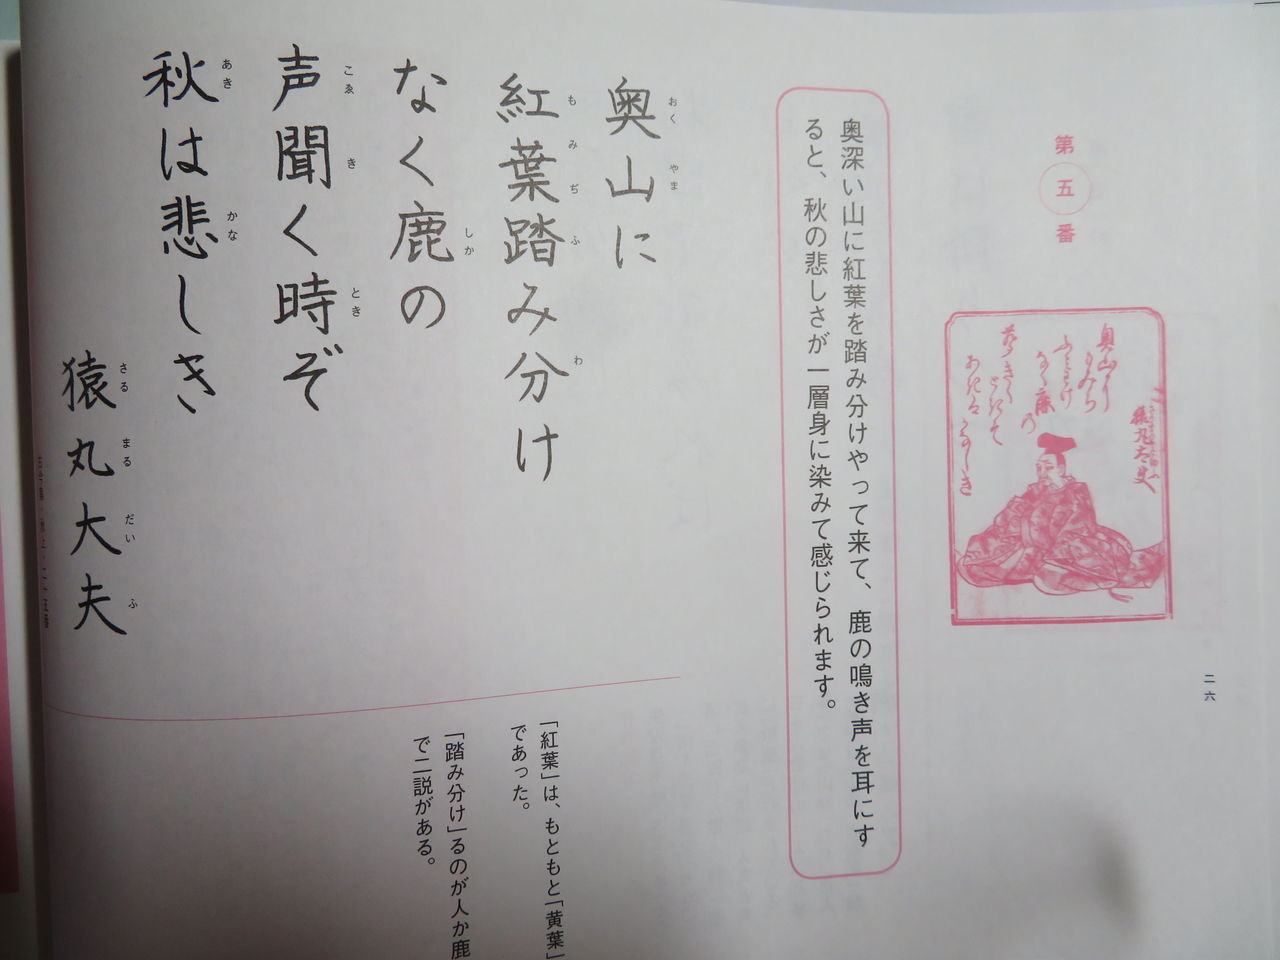 第五番
奥深い山に紅葉を踏み分けやって来て、鹿の鳴き声を耳にす
ると、秋の悲しさが一層身に染みて感じられます。
奥山に
おくやま
紅葉踏み分け
もみぢふわ
なく鹿の
しか
声聞く時ぞ
こゑきとき
秋は悲しき
あきかな
猿丸大夫
さるまるだいふ
「紅葉」は、もともと「黄葉」
であった。
「踏み分け」るのが人か鹿
で二説がある。
二六